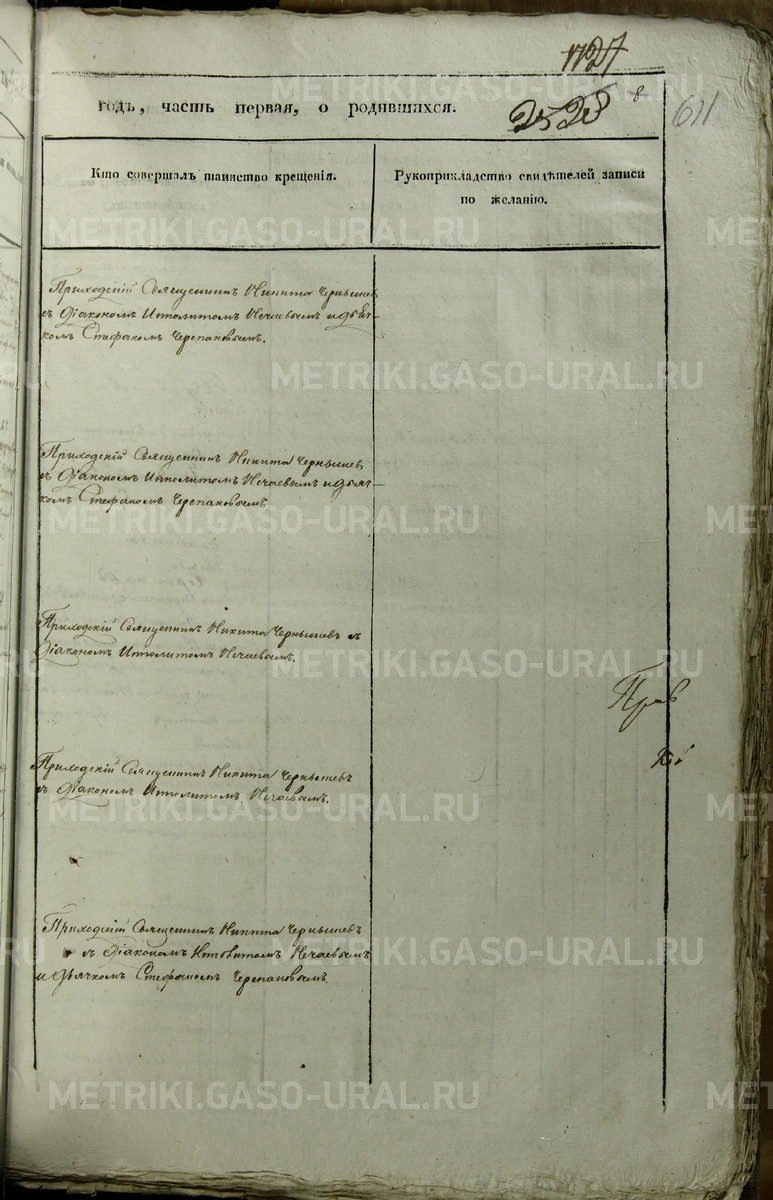 1727
годъ, часть первая, о родившихся.
2528
8
611
Кто совершалъ таинство крещенія.
Рукоприкладство свидѣтелей записи
по желанію.
Приходскій Священникъ Никита Чернышев
съ Діакономъ Ипполитомъ Нечаевымъ и дьяч-
комъ Стефаномъ Черепановымъ.
Приходскій Священникъ Никита Чернышев
съ Діакономъ Ипполитомъ Нечаевымъ и дьяч-
комъ Стефаномъ Черепановымъ
Приходскій Священникъ Никита Чернышевъ съ
Діакономъ Ипполитомъ Нечаевымъ.
Приходскій Священникъ Никита Чернышевъ
съ Діакономъ Ипполитомъ Нечаевымъ.
Приходскій Священникъ Никита Чернышевъ
съ Діакономъ Нечаевымъ
и дьячкомъ Стефаномъ Черепановымъ
METRIKI.GASO-URAL.RU